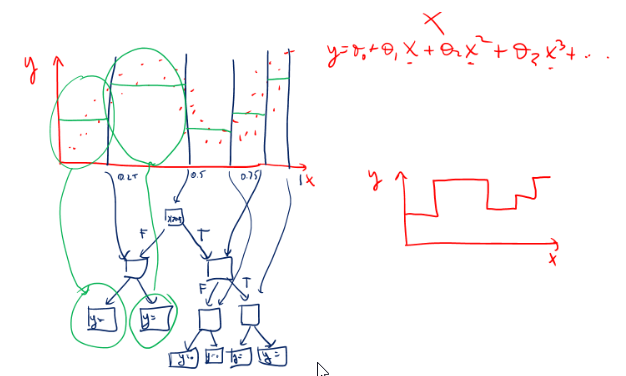 X
y = θ₀ + θ₁ x + θ₂ x² + θ₃ x³ + ...
y
0.25
0.5
0.75
1
x
y
x
F
T
F
T
y=
y=
y=
y=
y=
y=